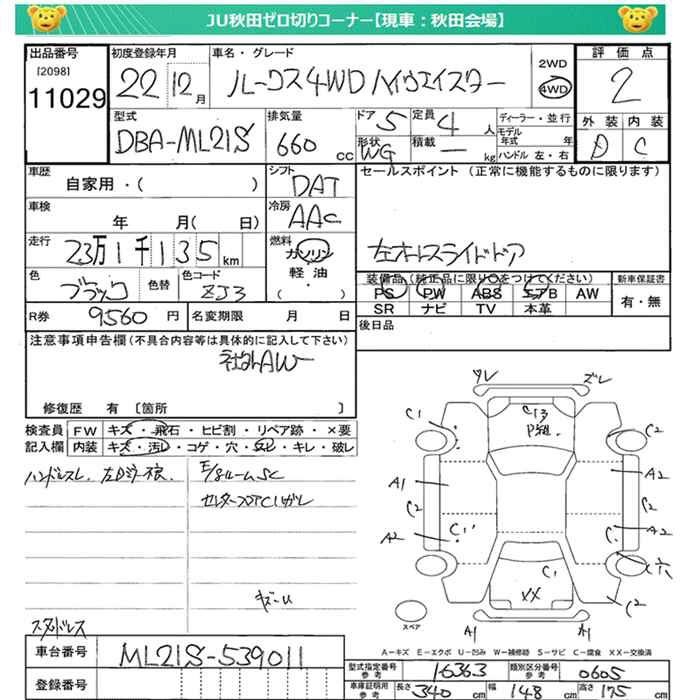 JU秋田ゼロ切りコーナー【現車：秋田会場】
出品番号
[2098]
11029
初度登録年月
22 12月
車名・グレード
ルークス4WD ハイウェイスター
2WD
4WD
評価点
2
型式
DBA-ML21S
排気量
660 CC
ドア 5
定員 4 人
形状 WG
積載 — kg
ディーラー・並行
モデル年式 年
ハンドル 左・右
外装 内装
D C
車歴
自家用・( )
シフト
DAT
セールスポイント（正常に機能するものに限ります）
左オートスライドドア
車検
年 月( 日)
冷房
AAC
走行
23万1千135km
燃料
ガソリン
軽油
( )
色
ブラック
色替
色コード
ZJ3
装備品（純正品に限り○をつけてください）
PS PW ABS エアB AW
SR ナビ TV 本革
新車保証書
有・無
R券 9560 円
名変期限 月 日
後日品
注意事項申告欄（不具合内容等は具体的に記入して下さい）
社外AW
修復歴 有 〔箇所 〕
検査員 記入欄
FW キズ・飛石・ヒビ割・リペア跡・×要
内装 キズ・汚レ・コゲ・穴・ヌレ・キレ・破レ
ハンドルスレ
E/gルームSC
キズーU
スタッドレス
ズレ
ズレ
C1
C13
P組
C2
A1
A2
C2
C2
A2
C1
C1
A2
C1
C穴
XX
C2
A1
A1
スペア
A－キズ E－エクボ U－凹み W－補修跡 S－サビ C－腐食 XX－交換済
車台番号
ML21S-539011
登録番号
型式指定番号 参考
16363
類別区分番号 参考
0605
車庫証明用 参考
長さ 340 cm
幅 148 cm
高さ 175 cm